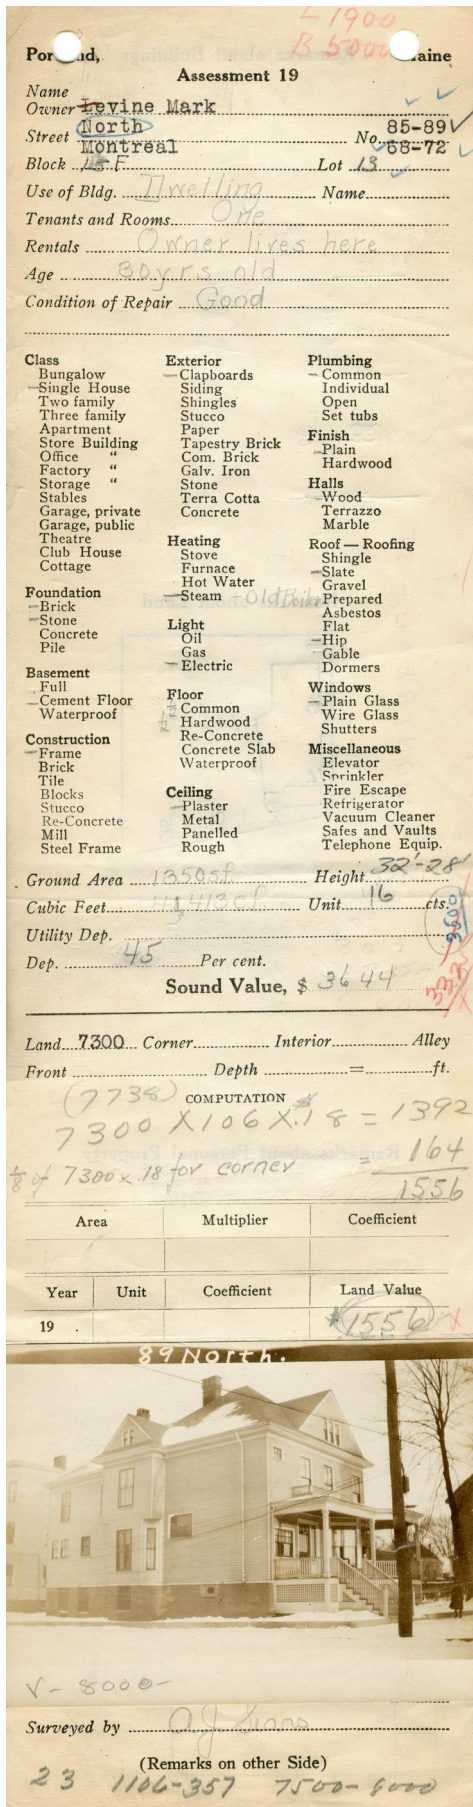 L 1900
B 5000
Portland, Maine
Assessment 19
Name
Owner Levine Mark
Street North No. 85-89
Montreal 68-72
Block 15-F Lot 13
Use of Bldg. Dwelling Name
Tenants and Rooms One
Rentals Owner lives here
Age 30 yrs old
Condition of Repair Good
Class
Bungalow
Single House
Two family
Three family
Apartment
Store Building
Office "
Factory "
Storage "
Stables
Garage, private
Garage, public
Theatre
Club House
Cottage
Foundation
Brick
Stone
Concrete
Pile
Basement
Full
Cement Floor
Waterproof
Construction
Frame
Brick
Tile
Blocks
Stucco
Re-Concrete
Mill
Steel Frame
Exterior
Clapboards
Siding
Shingles
Stucco
Paper
Tapestry Brick
Com. Brick
Galv. Iron
Stone
Terra Cotta
Concrete
Heating
Stove
Furnace
Hot Water
Steam
Light
Oil
Gas
Electric
Floor
Common
Hardwood
Re-Concrete
Concrete Slab
Waterproof
Ceiling
Plaster
Metal
Panelled
Rough
Plumbing
Common
Individual
Open
Set tubs
Finish
Plain
Hardwood
Halls
Wood
Terrazzo
Marble
Roof — Roofing
Shingle
Slate
Gravel
Prepared
Asbestos
Flat
Hip
Gable
Dormers
Windows
Plain Glass
Wire Glass
Shutters
Miscellaneous
Elevator
Sprinkler
Fire Escape
Refrigerator
Vacuum Cleaner
Safes and Vaults
Telephone Equip.
Ground Area 1350 sf Height 32'-28'
Cubic Feet 41413 cf Unit 16 cts.
Utility Dep.
Dep. 45 Per cent.
Sound Value, $ 3644
Land 7300 Corner Interior Alley
Front Depth = ft.
(7738) COMPUTATION
7300 X 106 X .18 = 1392
1/8 of 7300 x .18 for corner = 164
1556
Area Multiplier Coefficient
Year Unit Coefficient Land Value
19 . 1556
89 North.
V - 8000 -
Surveyed by
(Remarks on other Side)
23 1106-357 7500-6000